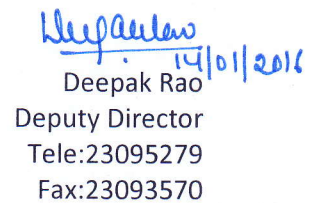 14/01/2016
Deepak Rao
Deputy Director
Tele:23095279
Fax:23093570